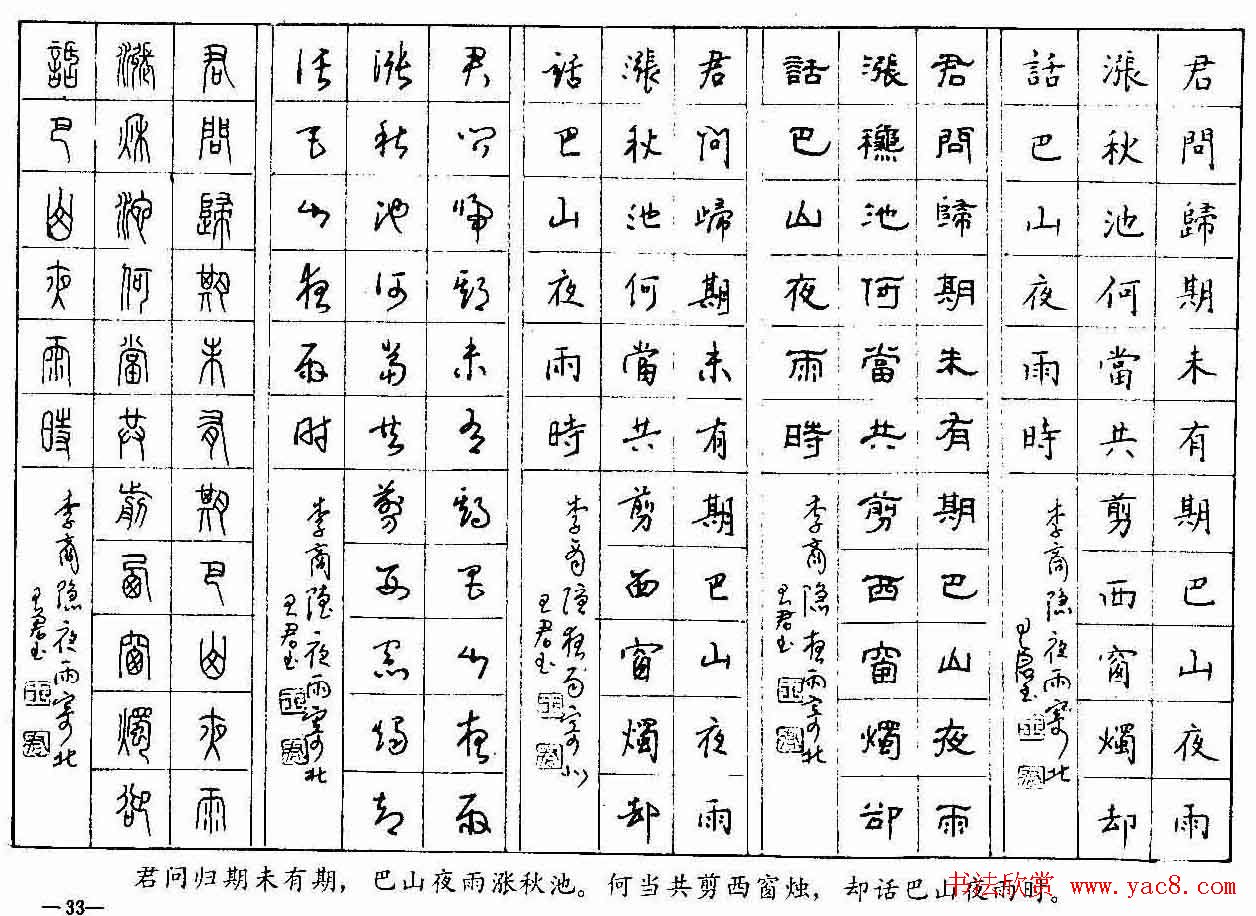 君問歸期未有期巴山夜雨
漲秋池何當共剪西窗燭却
話巴山夜雨時
李商隐夜雨寄北
王君书
君問歸期未有期巴山夜雨
漲龝池何當共剪西窗燭卻
話巴山夜雨時
李商隐夜雨寄北
王君书
君问歸期未有期巴山夜雨
漲秋池何當共剪西窗燭却
話巴山夜雨時
李商隐夜雨寄北
王君书
君问归期未有期巴山夜雨
涨秋池何當共剪西窗烛却
话巴山夜雨时
李商隐夜雨寄北
王君书
君問歸期未有期巴山夜雨
漲秋池何當共前西窗燭卻
話巴山夜雨時
李商隐夜雨寄北
王君书
君问归期未有期，巴山夜雨涨秋池。何当共剪西窗烛，却话巴山夜雨时。
书法欣赏 www.yac8.com
—33—